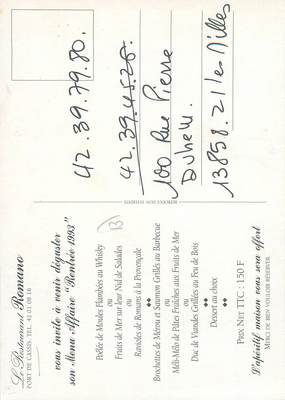 Le Restaurant Romano
PORT DE CASSIS. TEL. 42 01 08 16
vous invite à venir déguster
son Menu Affaire "Rentrée 1993"
Poêlée de Moules Flambées au Whisky
ou
Fruits de Mer sur leur Nid de Salades
ou
Ravioles de Romans à la Provençale
◆◆
Brochettes de Mérou et Saumon Grillés au Barbecue
ou
Méli-Mélo de Pâtes Fraîches aux Fruits de Mer
ou
Duc de Viandes Grillées au Feu de Bois
◆◆
Dessert au choix
◆◆
PRIX NET TTC : 150 F
L'apéritif maison vous sera offert
MERCI DE BIEN VOULOIR RÉSERVER.
13
42.39.79.80.
42.39.45.26.
100 Rue Pierre
Duhem.
13858. Z1 les Milles